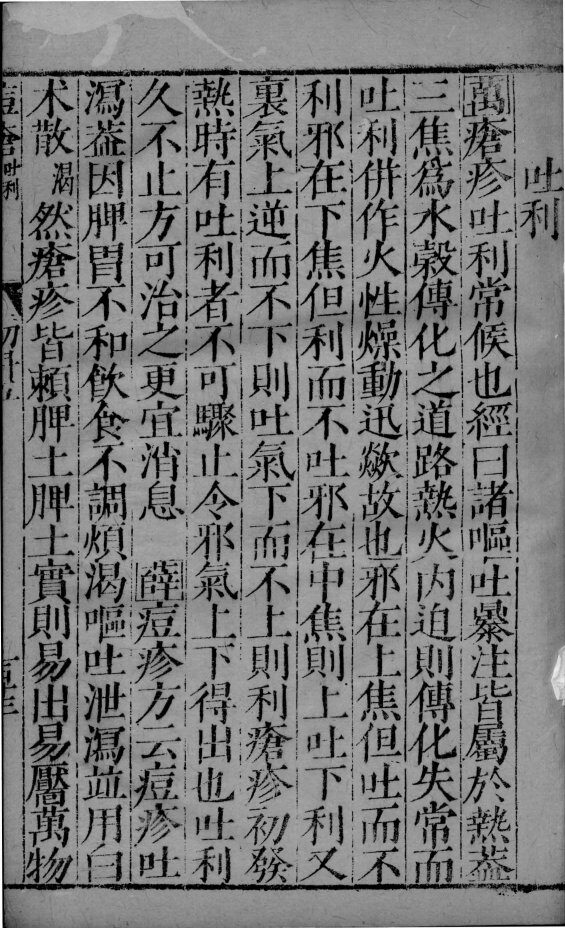 吐利
萬瘡疹吐利常候也經曰諸嘔吐暴注皆屬於熱葢
三焦爲水穀傳化之道路熱火內迫則傳化失常而
吐利併作火性燥動迅歘故也邪在上焦但吐而不
利邪在下焦但利而不吐邪在中焦則上吐下利又
裏氣上逆而不下則吐氣下而不上則利瘡疹初發
熱時有吐利者不可驟止令邪氣上下得出也吐利
久不止方可治之更宜消息 薛痘疹方云痘疹吐
瀉葢因脾胃不和飲食不調煩渴嘔吐泄瀉並用白
术散瀉然瘡疹皆賴脾土脾土實則易出易靨萬物
痘瘡吐利